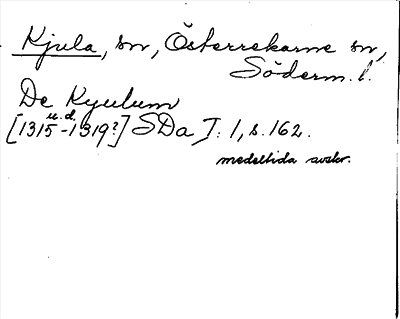 Kjula, sn, Österrekarne sn,
Söderm. l.
De Kyulum
u.d.
[1315-1319?] SDa I: 1, s. 162.
medeltida avskr.